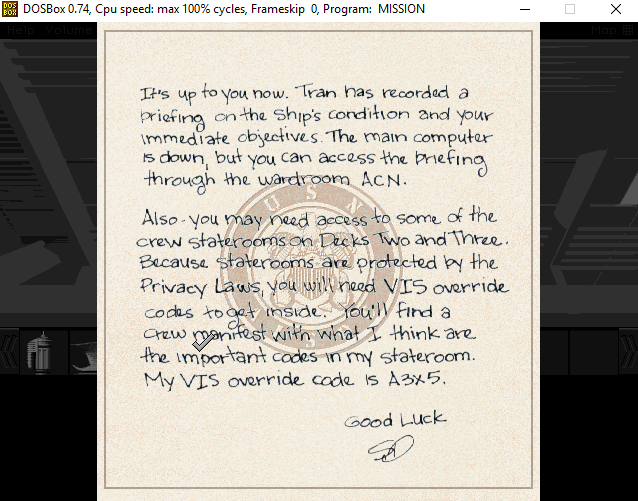 DOSBox 0.74, Cpu speed: max 100% cycles, Frameskip 0, Program: MISSION
Help Volume Map
It's up to you now. Tran has recorded a
briefing on the Ship's condition and your
immediate objectives. The main computer
is down, but you can access the briefing
through the wardroom ACN.
Also-you may need access to some of the
crew staterooms on Decks Two and Three.
Because staterooms are protected by the
Privacy Laws, you will need VIS override
codes to get inside. You'll find a
crew manifest with what I think are
the important codes in my stateroom.
My VIS override code is A3X5.
Good Luck
USN